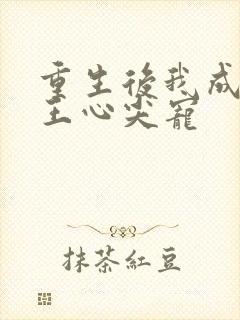 重生後我成
王心尖寵
抹茶紅豆